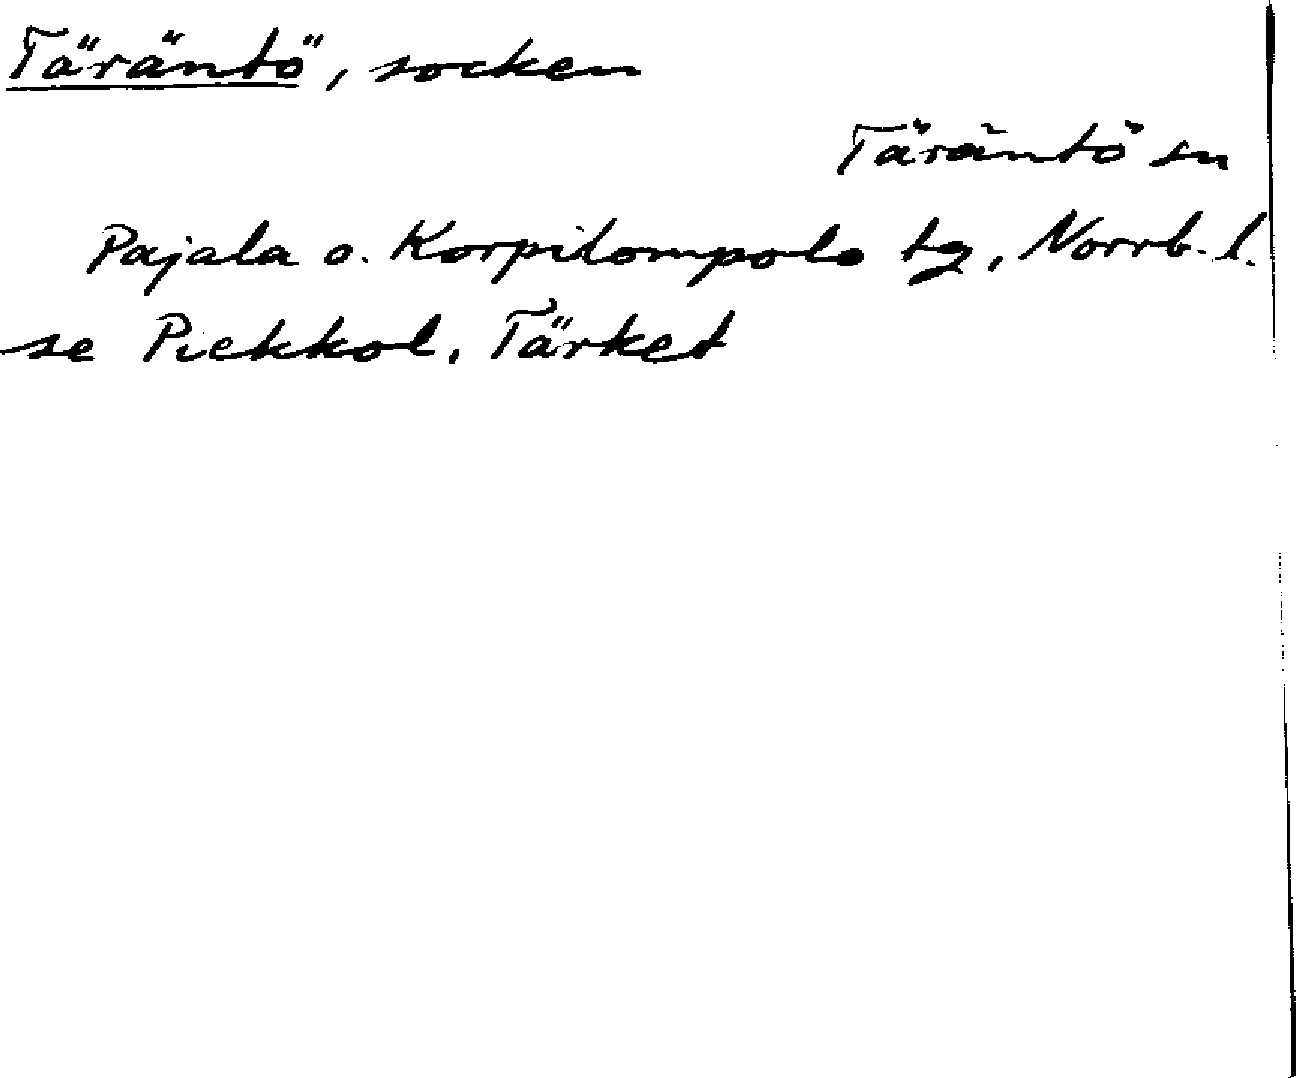 Täräntö, socken
Täräntö sn
Pajala o. Korpilompolo tg, Norrb. l.
se Piekkol, Tärket